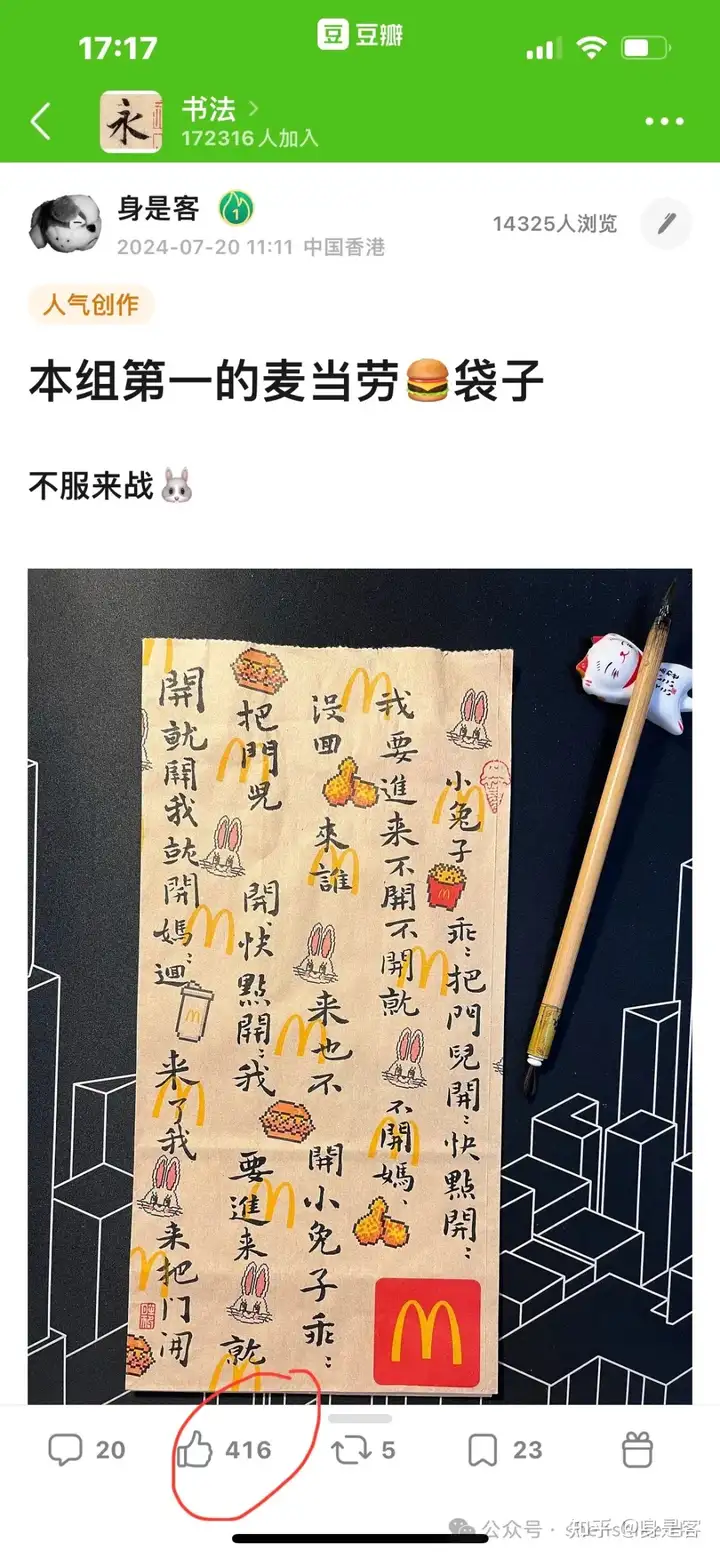 17:17
豆 豆瓣
永
书法
172316人加入
身是客
1
2024-07-20 11:11 中国香港
14325人浏览
人气创作
本组第一的麦当劳🍔袋子
不服来战🐰
小兔子乖：把門兒開：快點開：
我要進来不開不開就不開媽、
没囬來誰来也不開小兔子乖：
把門兒開、快點開：我要進来就
開就開我就開媽：迴来了我来把门開
20
416
5
23
公众号 ·
知乎 @身是客